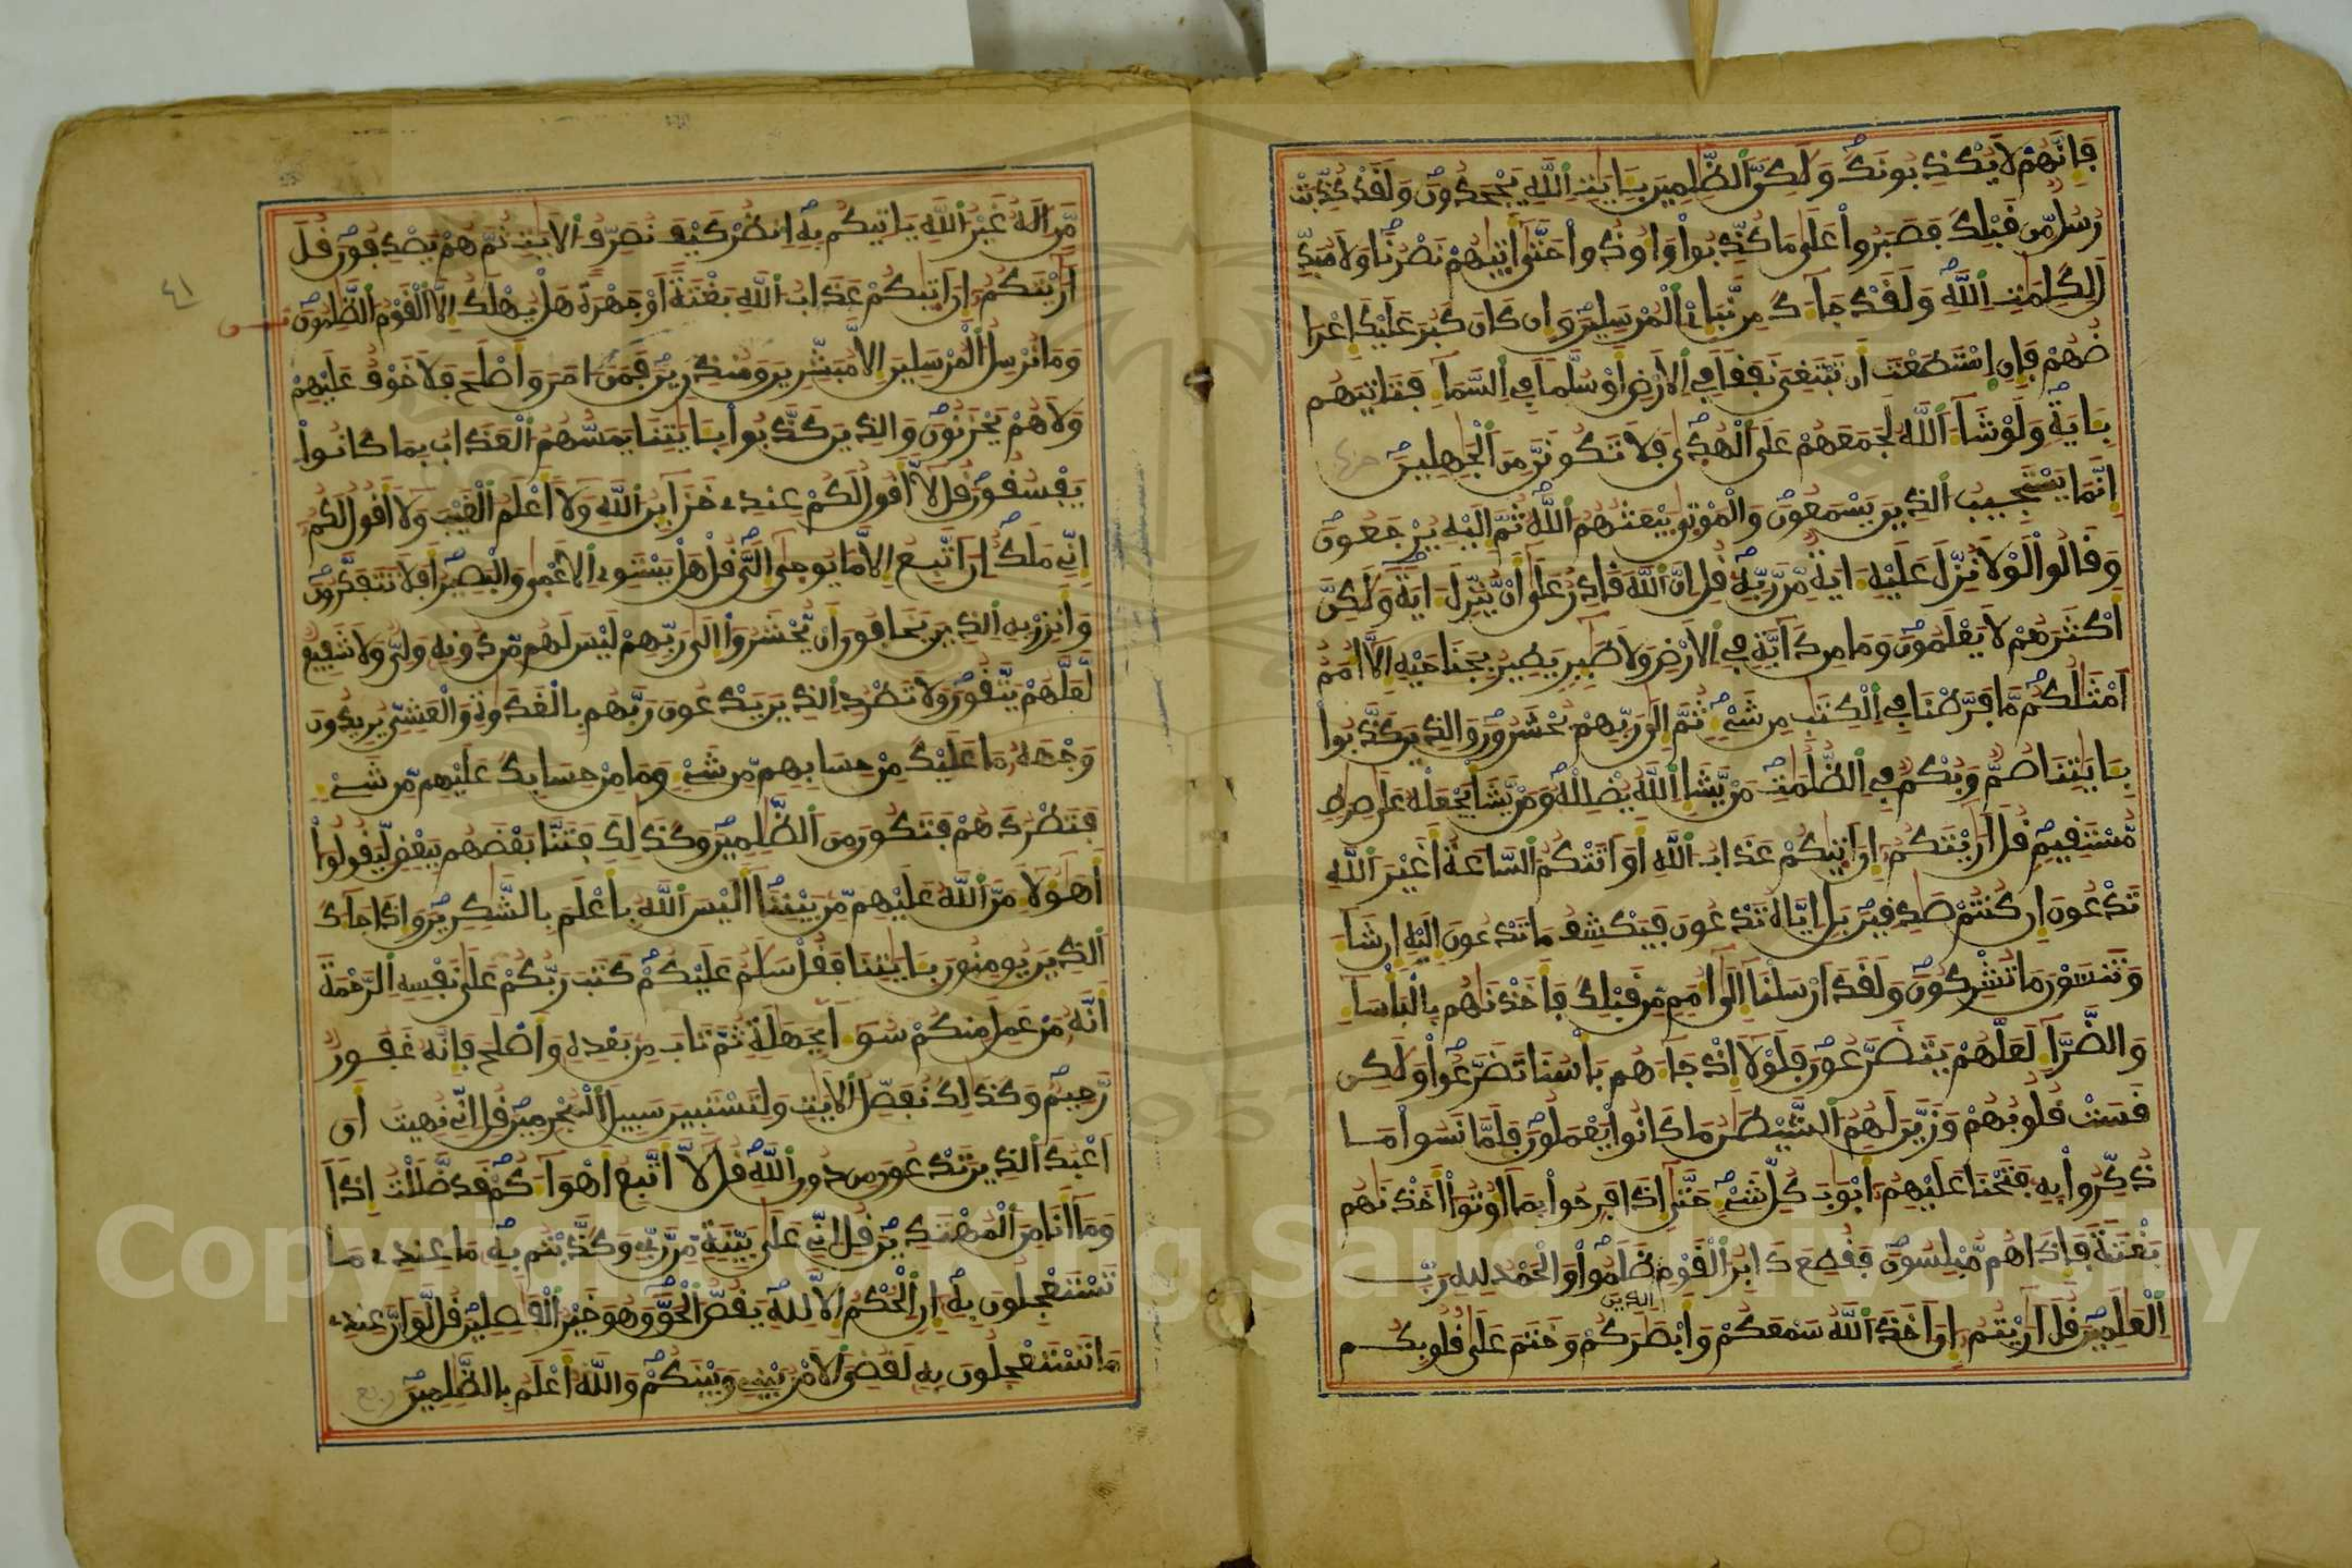 فَإِنَّهُمْ لَا يُكْذِبُونَكَ وَلَٰكِنَّ ٱلظَّٰلِمِينَ بِـَٔايَٰتِ ٱللَّهِ يَجْحَدُونَ وَلَقَدْ كُذِّبَتْ
رُسُلٌ مِّن قَبْلِكَ فَصَبَرُواْ عَلَىٰ مَا كُذِّبُواْ وَأُوذُواْ حَتَّىٰ أَتَىٰهُمْ نَصْرُنَا وَلَا مُبَدِّ
لَ لِكَلِمَٰتِ ٱللَّهِ وَلَقَدْ جَآءَكَ مِن نَّبَإِىْ ٱلْمُرْسَلِينَ وَإِن كَانَ كَبُرَ عَلَيْكَ إِعْرَا
ضُهُمْ فَإِنِ ٱسْتَطَعْتَ أَن تَبْتَغِىَ نَفَقًا فِى ٱلْأَرْضِ أَوْ سُلَّمًا فِى ٱلسَّمَآءِ فَتَأْتِيَهُم
بِـَٔايَةٍ وَلَوْ شَآءَ ٱللَّهُ لَجَمَعَهُمْ عَلَى ٱلْهُدَىٰ فَلَا تَكُونَنَّ مِنَ ٱلْجَٰهِلِينَ
إِنَّمَا يَسْتَجِيبُ ٱلَّذِينَ يَسْمَعُونَ وَٱلْمَوْتَىٰ يَبْعَثُهُمُ ٱللَّهُ ثُمَّ إِلَيْهِ يُرْجَعُونَ
وَقَالُواْ لَوْلَا نُزِّلَ عَلَيْهِ ءَايَةٌ مِّن رَّبِّهِ قُلْ إِنَّ ٱللَّهَ قَادِرٌ عَلَىٰ أَن يُنَزِّلَ ءَايَةً وَلَٰكِنَّ
أَكْثَرَهُمْ لَا يَعْلَمُونَ وَمَا مِن دَآبَّةٍ فِى ٱلْأَرْضِ وَلَا طَٰٓئِرٍ يَطِيرُ بِجَنَاحَيْهِ إِلَّا أُمَمٌ
أَمْثَالُكُم مَّا فَرَّطْنَا فِى ٱلْكِتَٰبِ مِن شَىْءٍ ثُمَّ إِلَىٰ رَبِّهِمْ يُحْشَرُونَ وَٱلَّذِينَ كَذَّبُواْ
بِـَٔايَٰتِنَا صُمٌّ وَبُكْمٌ فِى ٱلظُّلُمَٰتِ مَن يَشَإِ ٱللَّهُ يُضْلِلْهُ وَمَن يَشَأْ يَجْعَلْهُ عَلَىٰ صِرَٰطٍ
مُّسْتَقِيمٍ قُلْ أَرَٰيْتَكُمْ إِنْ أَتَىٰكُمْ عَذَابُ ٱللَّهِ أَوْ أَتَتْكُمُ ٱلسَّاعَةُ أَغَيْرَ ٱللَّهِ
تَدْعُونَ إِن كُنتُمْ صَٰدِقِينَ بَلْ إِيَّاهُ تَدْعُونَ فَيَكْشِفُ مَا تَدْعُونَ إِلَيْهِ إِن شَآءَ
وَتَنسَوْنَ مَا تُشْرِكُونَ وَلَقَدْ أَرْسَلْنَآ إِلَىٰٓ أُمَمٍ مِّن قَبْلِكَ فَأَخَذْنَٰهُم بِٱلْبَأْسَآءِ
وَٱلضَّرَّآءِ لَعَلَّهُمْ يَتَضَرَّعُونَ فَلَوْلَآ إِذْ جَآءَهُم بَأْسُنَا تَضَرَّعُواْ وَلَٰكِن
قَسَتْ قُلُوبُهُمْ وَزَيَّنَ لَهُمُ ٱلشَّيْطَٰنُ مَا كَانُواْ يَعْمَلُونَ فَلَمَّا نَسُواْ مَا
ذُكِّرُواْ بِهِ فَتَحْنَا عَلَيْهِمْ أَبْوَٰبَ كُلِّ شَىْءٍ حَتَّىٰٓ إِذَا فَرِحُواْ بِمَآ أُوتُوٓاْ أَخَذْنَٰهُم
بَغْتَةً فَإِذَا هُم مُّبْلِسُونَ فَقُطِعَ دَابِرُ ٱلْقَوْمِ ٱلَّذِينَ ظَلَمُواْ وَٱلْحَمْدُ لِلَّهِ رَبِّ
ٱلْعَٰلَمِينَ قُلْ أَرَٰيْتُمْ إِنْ أَخَذَ ٱللَّهُ سَمْعَكُمْ وَأَبْصَٰرَكُمْ وَخَتَمَ عَلَىٰ قُلُوبِكُم
مَّنْ إِلَٰهٌ غَيْرُ ٱللَّهِ يَأْتِيكُم بِهِ ٱنظُرْ كَيْفَ نُصَرِّفُ ٱلْأَيَٰتِ ثُمَّ هُمْ يَصْدِفُونَ قُلْ
أَرَٰيْتَكُمْ إِنْ أَتَىٰكُمْ عَذَابُ ٱللَّهِ بَغْتَةً أَوْ جَهْرَةً هَلْ يُهْلَكُ إِلَّا ٱلْقَوْمُ ٱلظَّٰلِمُونَ
وَمَا نُرْسِلُ ٱلْمُرْسَلِينَ إِلَّا مُبَشِّرِينَ وَمُنذِرِينَ فَمَنْ ءَامَنَ وَأَصْلَحَ فَلَا خَوْفٌ عَلَيْهِمْ
وَلَا هُمْ يَحْزَنُونَ وَٱلَّذِينَ كَذَّبُواْ بِـَٔايَٰتِنَا يَمَسُّهُمُ ٱلْعَذَابُ بِمَا كَانُواْ
يَفْسُقُونَ قُل لَّآ أَقُولُ لَكُمْ عِندِى خَزَآئِنُ ٱللَّهِ وَلَآ أَعْلَمُ ٱلْغَيْبَ وَلَآ أَقُولُ لَكُمْ
إِنِّى مَلَكٌ إِنْ أَتَّبِعُ إِلَّا مَا يُوحَىٰٓ إِلَىَّ قُلْ هَلْ يَسْتَوِى ٱلْأَعْمَىٰ وَٱلْبَصِيرُ أَفَلَا تَتَفَكَّرُونَ
وَأَنذِرْ بِهِ ٱلَّذِينَ يَخَافُونَ أَن يُحْشَرُوٓاْ إِلَىٰ رَبِّهِمْ لَيْسَ لَهُم مِّن دُونِهِ وَلِىٌّ وَلَا شَفِيعٌ
لَّعَلَّهُمْ يَتَّقُونَ وَلَا تَطْرُدِ ٱلَّذِينَ يَدْعُونَ رَبَّهُم بِٱلْغَدَوٰةِ وَٱلْعَشِىِّ يُرِيدُونَ
وَجْهَهُ مَا عَلَيْكَ مِنْ حِسَابِهِم مِّن شَىْءٍ وَمَا مِنْ حِسَابِكَ عَلَيْهِم مِّن شَىْءٍ
فَتَطْرُدَهُمْ فَتَكُونَ مِنَ ٱلظَّٰلِمِينَ وَكَذَٰلِكَ فَتَنَّا بَعْضَهُم بِبَعْضٍ لِّيَقُولُوٓاْ
أَهَٰٓؤُلَآءِ مَنَّ ٱللَّهُ عَلَيْهِم مِّن بَيْنِنَآ أَلَيْسَ ٱللَّهُ بِأَعْلَمَ بِٱلشَّٰكِرِينَ وَإِذَا جَآءَكَ
ٱلَّذِينَ يُومِنُونَ بِـَٔايَٰتِنَا فَقُلْ سَلَٰمٌ عَلَيْكُمْ كَتَبَ رَبُّكُمْ عَلَىٰ نَفْسِهِ ٱلرَّحْمَةَ
أَنَّهُ مَنْ عَمِلَ مِنكُمْ سُوٓءًا بِجَهَٰلَةٍ ثُمَّ تَابَ مِنۢ بَعْدِهِ وَأَصْلَحَ فَإِنَّهُ غَفُورٌ
رَّحِيمٌ وَكَذَٰلِكَ نُفَصِّلُ ٱلْأَيَٰتِ وَلِتَسْتَبِينَ سَبِيلَ ٱلْمُجْرِمِينَ قُلْ إِنِّى نُهِيتُ أَنْ
أَعْبُدَ ٱلَّذِينَ تَدْعُونَ مِن دُونِ ٱللَّهِ قُل لَّآ أَتَّبِعُ أَهْوَآءَكُمْ قَد ضَّلَلْتُ إِذًا
وَمَآ أَنَا مِنَ ٱلْمُهْتَدِينَ قُلْ إِنِّى عَلَىٰ بَيِّنَةٍ مِّن رَّبِّى وَكَذَّبْتُم بِهِ مَا عِندِى مَا
تَسْتَعْجِلُونَ بِهِ إِنِ ٱلْحُكْمُ إِلَّا لِلَّهِ يَقُصُّ ٱلْحَقَّ وَهُوَ خَيْرُ ٱلْفَٰصِلِينَ قُل لَّوْ أَنَّ عِندِى
مَا تَسْتَعْجِلُونَ بِهِ لَقُضِىَ ٱلْأَمْرُ بَيْنِى وَبَيْنَكُمْ وَٱللَّهُ أَعْلَمُ بِٱلظَّٰلِمِينَ
٤١
Copyright © King Saud University